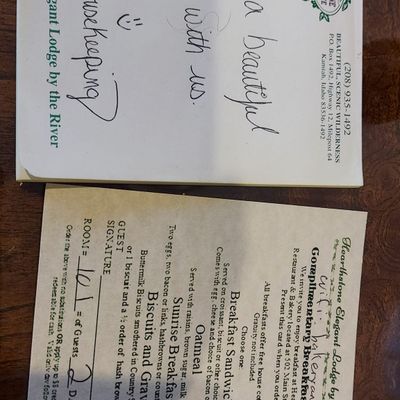 (208) 935-1492
BEAUTIFUL, SCENIC WILDERNESS
P.O. Box 1492, Highway 12, Milepost 64
Kamiah, Idaho 83536-1492
a beautiful
with us.
usekeeping
:)
egant Lodge by the River
Hearthstone Elegant Lodge by
Complimentary Breakfast
We invite you to enjoy breakfast at
Restaurant & Bakery located at 502 Main
Present this card when you order
All breakfasts offer free house
Gratuity not included
Choose one:
Breakfast Sandwi
Served on croissant, biscuit or other choice
Comes with egg, cheese and choice of bacon o
Oatmeal
Served with raisins, brown sugar, milk
Sunrise Breakfas
Two eggs, two bacon or links, hashbrowns or coun
Biscuits and Grav
Buttermilk Biscuits smothered in Country
or 1 biscuit and a ½ order of hash brow
GUEST
SIGNATURE
ROOM = 101 = of Guests 2 D
Order the above with no substitutions OR apply up to
redeemable for cash. Valid only